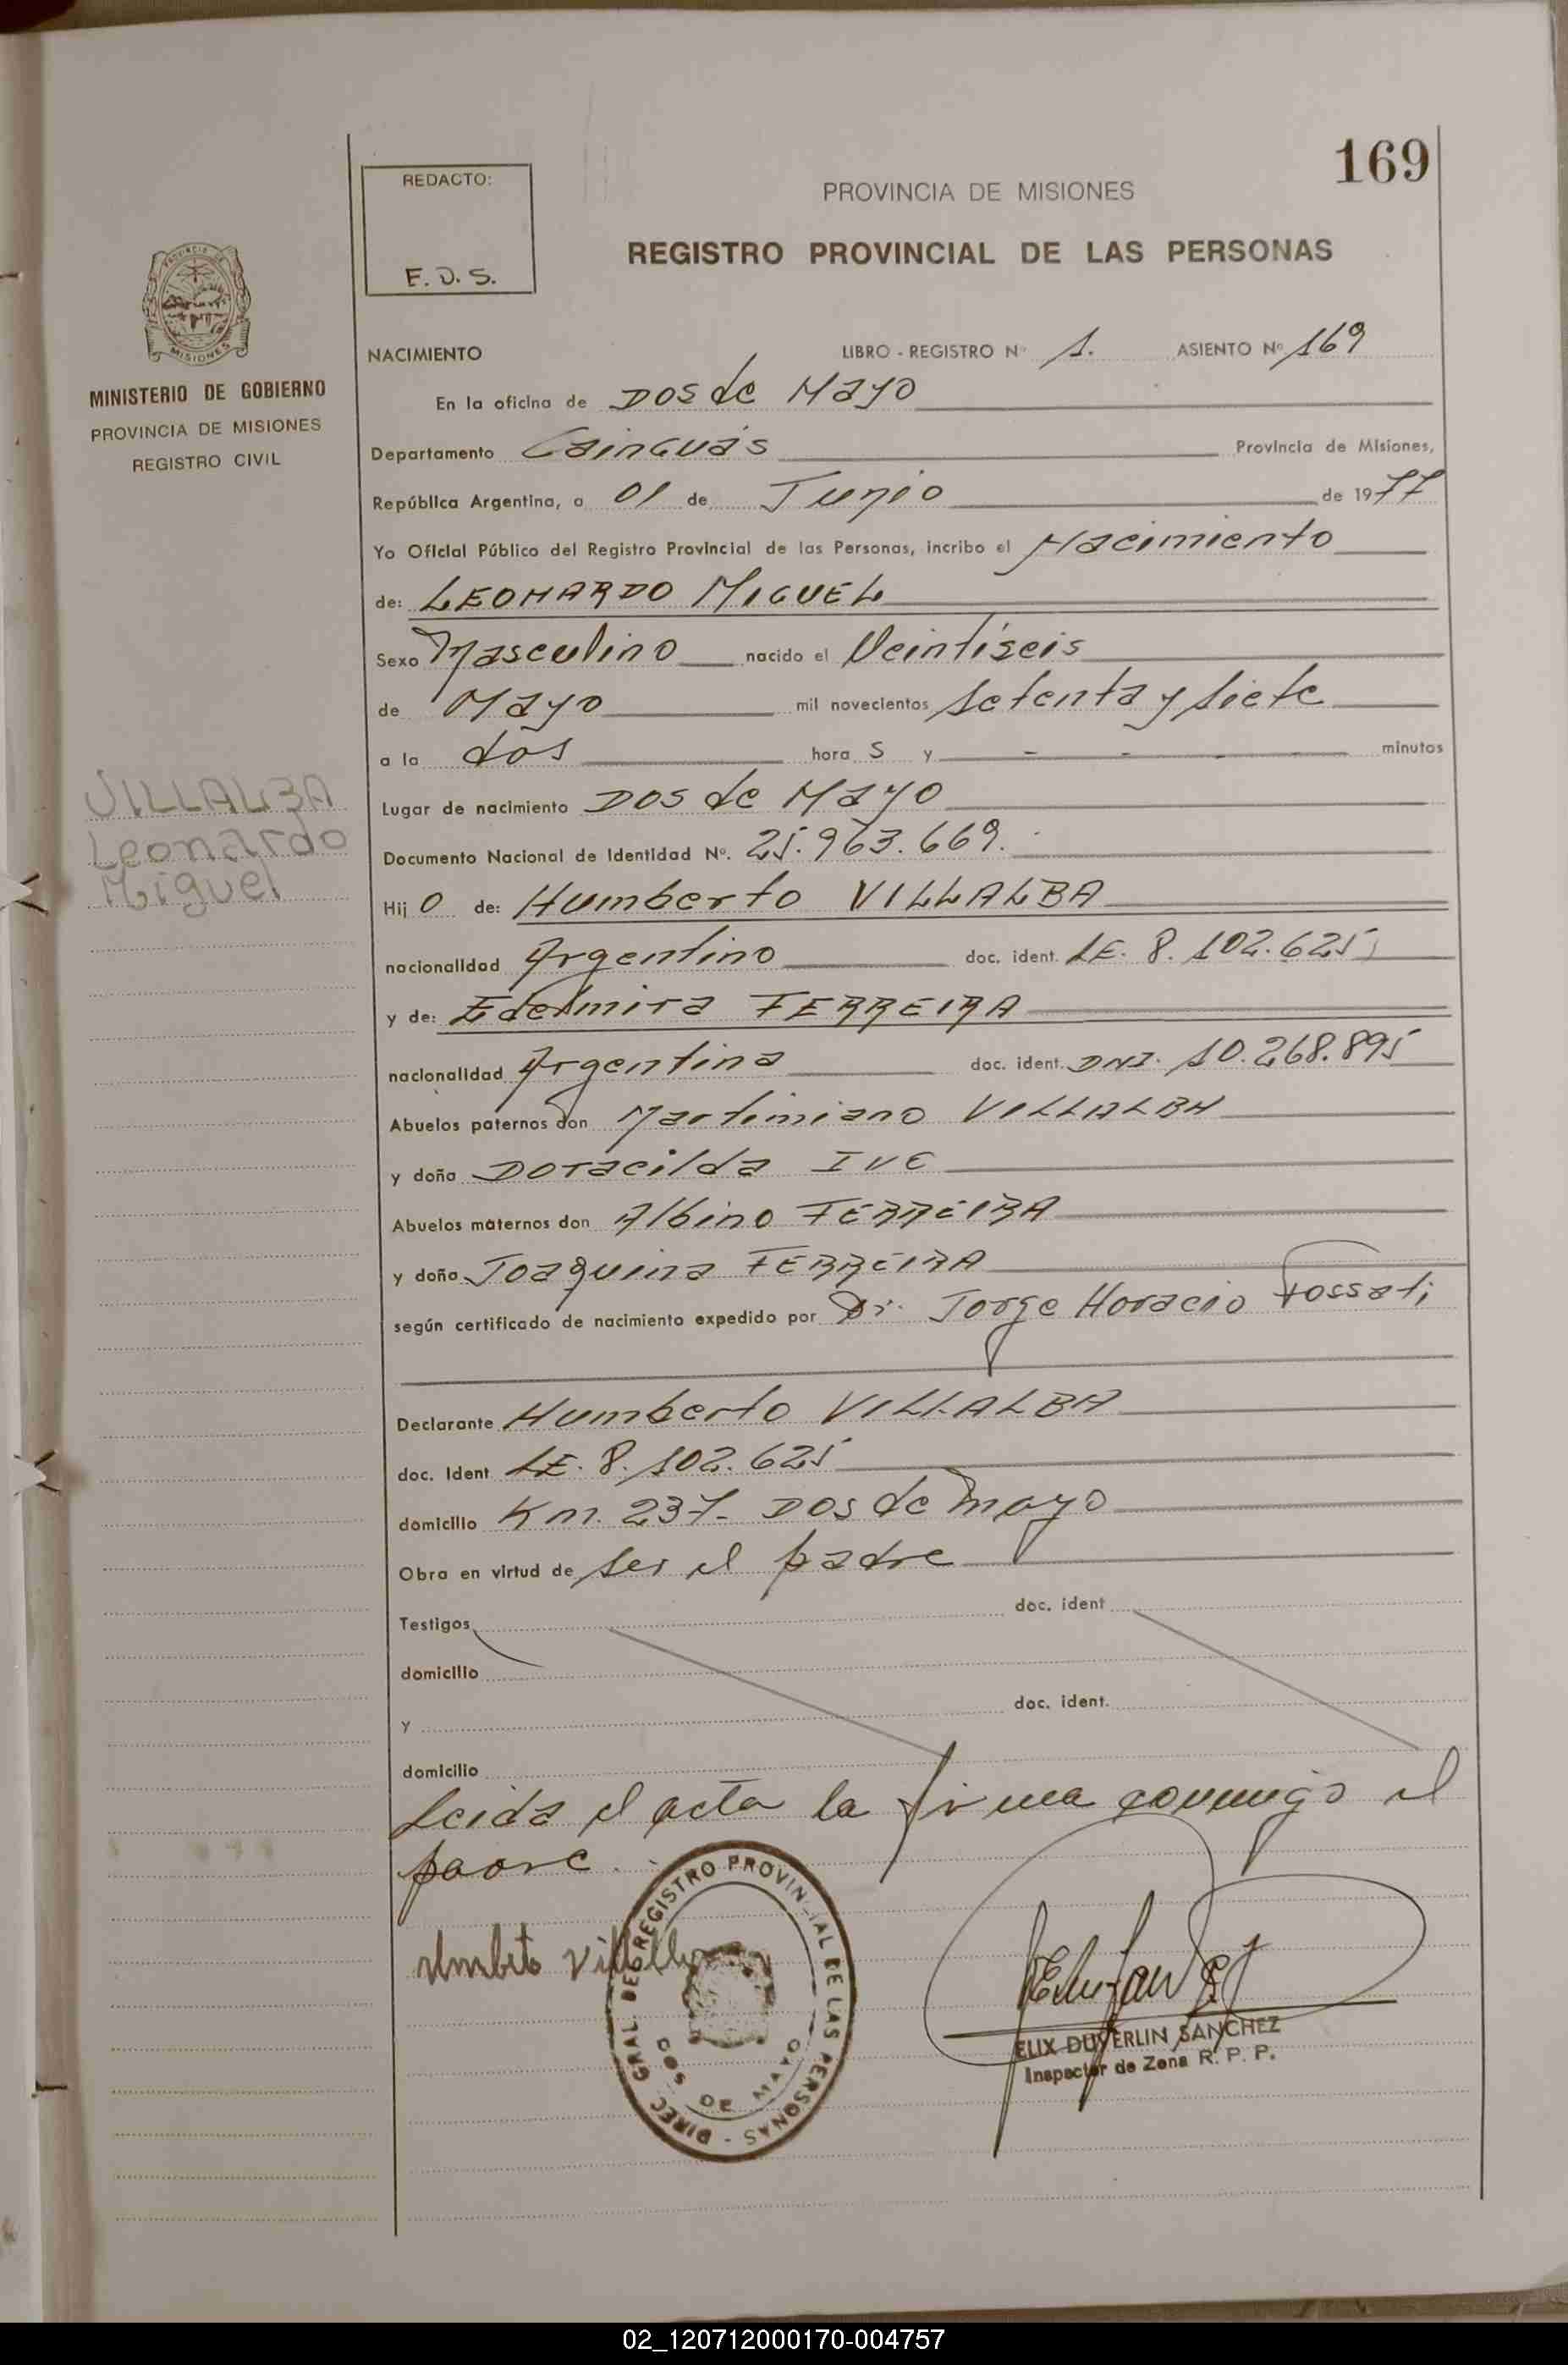 169
REDACTO:
F. D. S.
PROVINCIA DE MISIONES
REGISTRO PROVINCIAL DE LAS PERSONAS
MISIONES
MINISTERIO DE GOBIERNO
PROVINCIA DE MISIONES
REGISTRO CIVIL
NACIMIENTO LIBRO - REGISTRO Nº 1. ASIENTO Nº 169
En la oficina de DOS de MAYO
Departamento CainGuás Provincia de Misiones,
República Argentina, a 01 de Junio de 1977
Yo Oficial Público del Registro Provincial de las Personas, incribo el Nacimiento
de: LEONARDO MIGUEL
Sexo Masculino nacido el Veintiseis
de Mayo mil novecientos setenta y siete
a la dos hora s y - - - - minutos
VILLALBA
Leonardo
Miguel
Lugar de nacimiento DOS de MAYO
Documento Nacional de Identidad Nº. 25.963.669.
Hij o de: Humberto VILLALBA
nacionalidad Argentino doc. ident. LE. 8.102.625
y de: Edelmira FERREIRA
nacionalidad Argentina doc. ident. DNI. 10.268.895
Abuelos paternos don Martimiano VILLALBA
y doña Doracilda IVE
Abuelos maternos don Albino FERREIRA
y doña Joaquina FERREIRA
según certificado de nacimiento expedido por Dr. Jorge Horacio Fossati
Declarante Humberto VILLALBA
doc. Ident LE. 8.102.625
domicilio Km. 237- DOS de mayo
Obra en virtud de ser el padre
Testigos doc. ident
domicilio
y doc. ident.
domicilio
Leida el acta la firma conmigo el
padre.
Umbeto Villalba
DIREC. GRAL. DEL REGISTRO PROVINCIAL DE LAS PERSONAS -
DOS DE MAYO
ELIX DUVERLIN SANCHEZ
Inspector de Zona R. P. P.
02_120712000170-004757